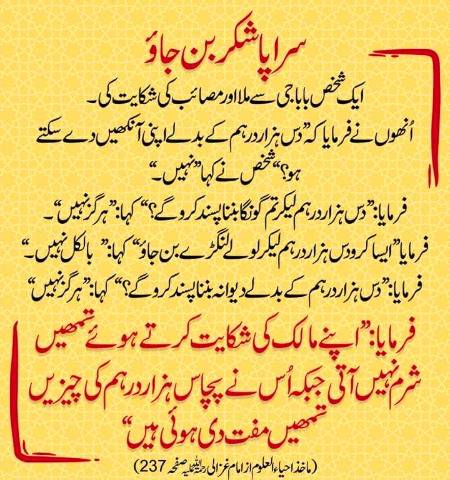 سراپا شکر بن جاؤ
ایک شخص بابا جی سے ملا اور مصائب کی شکایت کی۔
اُنھوں نے فرمایا کہ ”دس ہزار درہم کے بدلے اپنی آنکھیں دے سکتے
ہو؟“ شخص نے کہا ”نہیں۔“
فرمایا: ”دس ہزار درہم لیکر تم گونگا بننا پسند کرو گے؟“ کہا: ”ہرگز نہیں“۔
فرمایا ”ایسا کرو دس ہزار درہم لیکر لولے لنگڑے بن جاؤ“ کہا: ”بالکل نہیں۔“
فرمایا: ”دس ہزار درہم کے بدلے دیوانہ بننا پسند کرو گے؟“ کہا: ”ہرگز نہیں“
فرمایا: ”اپنے مالک کی شکایت کرتے ہوئے تمھیں
شرم نہیں آتی جبکہ اُس نے پچاس ہزار درہم کی چیزیں
تمھیں مفت دی ہوئی ہیں“
(ماخذ احیاء العلوم از امام غزالی رحمۃ اللہ علیہ صفحہ 237)